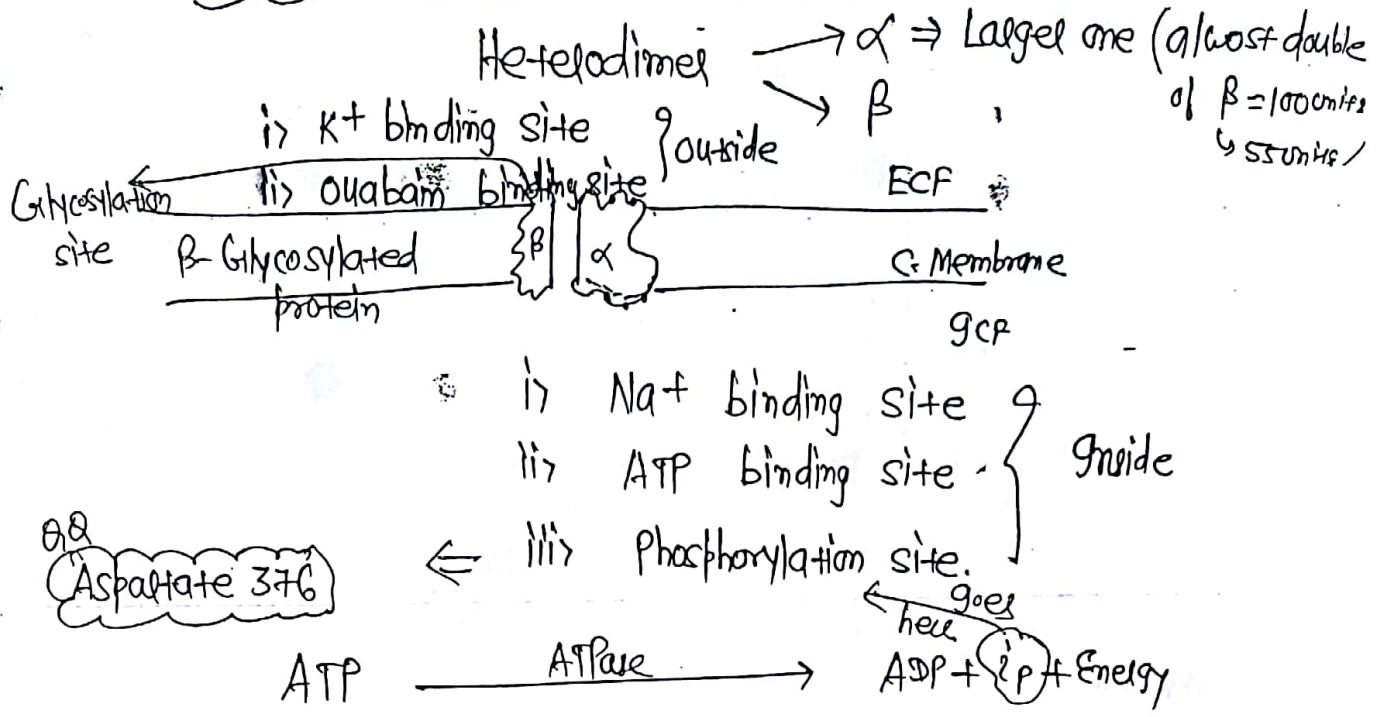 Heterodimer → α ⇒ Larger one (almost double
→ β of β = 100 units
↳ 55 units /
i> K+ binding site } outside
ii> ouabain binding site
ECF
Glycosylation
site
β-Glycosylated
protein
β α
C. Membrane
ICF
i> Na+ binding site } Inside
ii> ATP binding site
iii> Phosphorylation site.
QQ
Aspartate 376 ⇐
goes
here
ATP ATPase → ADP + iP + Energy